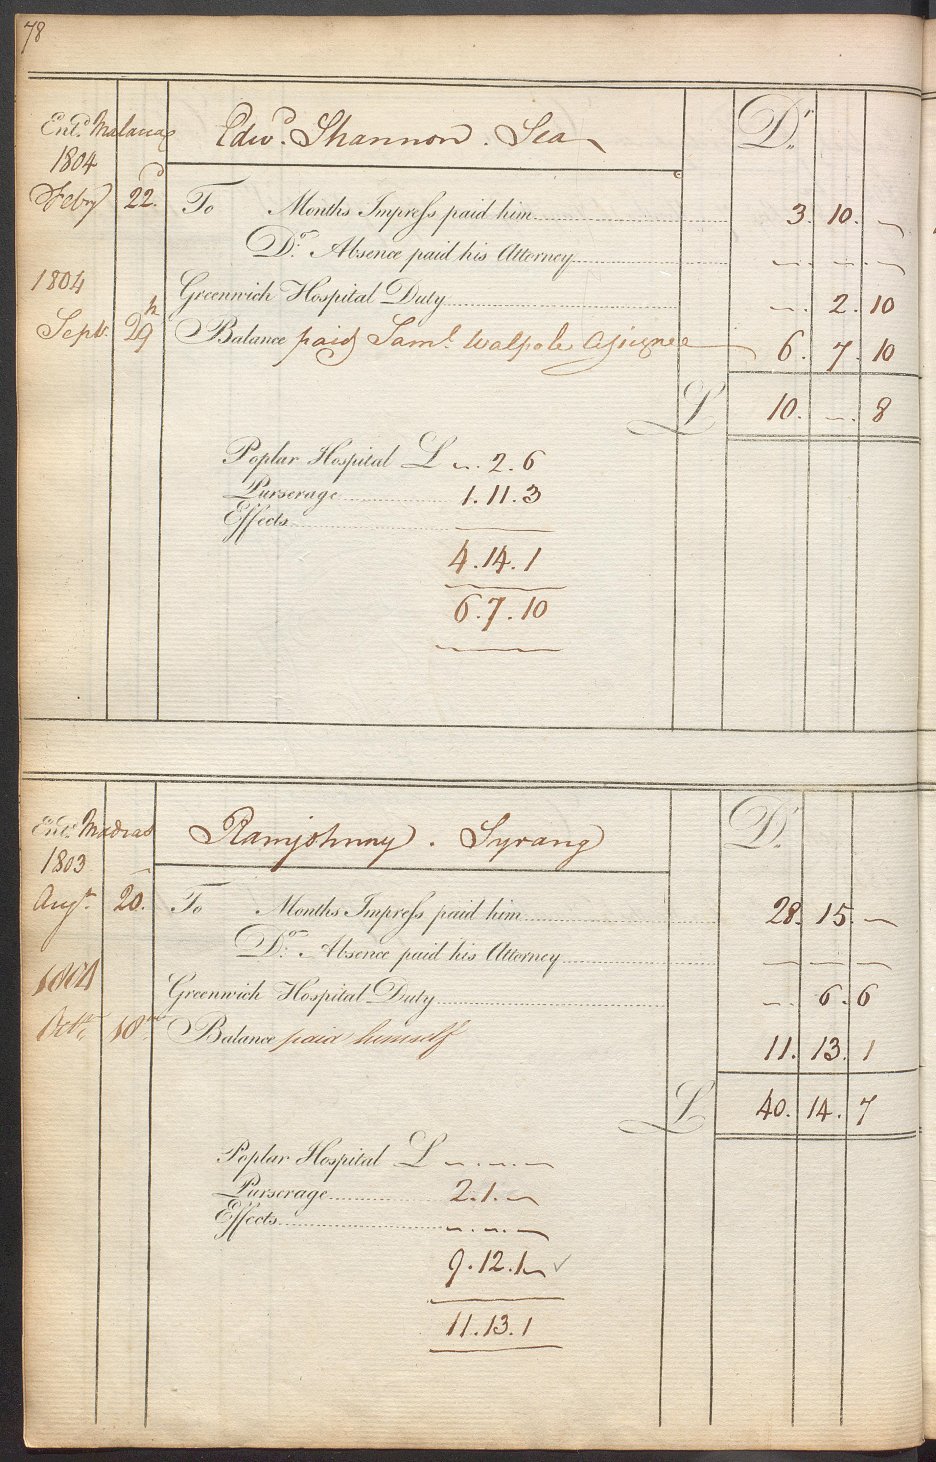 78
Entd. Malacca Edwd. Shannon . Sea Dr.
1804
Feby 22d. To Months Impress paid him 3. 10. —
Do. Absence paid his Attorney — . — . —
1804 Greenwich Hospital Duty — . 2. 10
Septr. 29th Balance paid Saml. Walpole Assignee 6. 7. 10
£ 10. — . 8
Poplar Hospital £ — . 2 . 6
Purserage 1 . 11 . 3
Effects —
4 . 14 . 1
6 . 7 . 10
Entd. Madras Ramjohnny . Syrang Dr.
1803
Augt. 20. To Months Impress paid him 28. 15. —
Do. Absence paid his Attorney — — —
1804 Greenwich Hospital Duty — . 6 . 6
Octr. 18th Balance paid himself 11. 13. 1
£ 40. 14. 7
Poplar Hospital £ — . — . —
Purserage 2 . 1 . —
Effects — . — . —
9 . 12 . 1
11 . 13 . 1